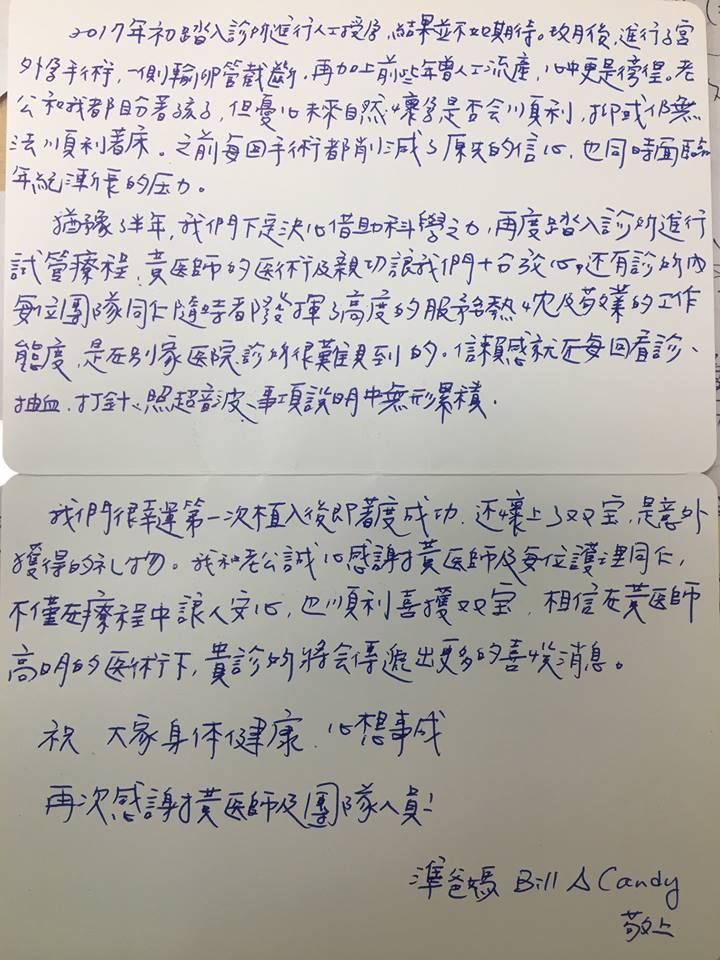 2017年初踏入診所進行人工授孕,結果並不如期待。數月後,進行子宮
外孕手術,一側輸卵管截斷,再加上前些年曾人工流產,心中更是徬徨。老
公和我都盼著孩子,但憂心未來自然懷孕是否会順利,抑或仍無
法順利著床。之前每回手術都削減了原先的信心,也同時面臨
年紀漸長的压力。
猶豫了半年,我們下定決心借助科學之力,再度踏入診所進行
試管療程,黃医師的医術及親切讓我們十分放心,还有診所內
每位團隊同仁隨時都發揮了高度的服務熱忱及敬業的工作
態度,是在別家医院診所很難見到的。信賴感就在每回看診、
抽血、打針、照超音波、事項說明中無形累積.
我們很幸運第一次植入後即著床成功.还懷上了双宝,是意外
獲得的礼物。我和老公誠心感謝黃医師及每位護理同仁,
不僅在療程中讓人安心,也順利喜獲双宝,相信在黃医師
高明的医術下,貴診所將会傳遞出更多的喜悅消息。
祝 大家身体健康 心想事成
再次感謝黃医師及團隊人員!
準爸媽 Bill & Candy
敬上